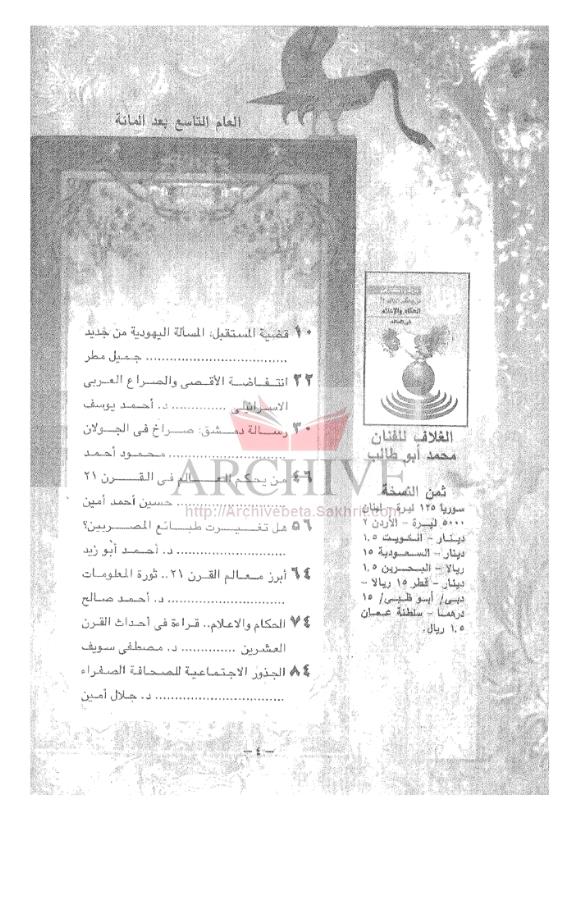 العام التاسع بعد المائة
١٠ قضية المستقبل: المسألة اليهودية من جديد
................................... جميل مطر
٢٢ انتفاضة الأقصى والصراع العربى
الاسرائيلى .............. د. أحمد يوسف
٣٠ رسالة دمشق: صراخ فى الجولان
............................. محمود أحمد
٤٦ من يحكم العالم فى القرن ٢١
........................ حسين أحمد أمين
٥٦ هل تغيرت طبائع المصريين؟
........................... د. أحمد أبو زيد
٦٤ أبرز معالم القرن ٢١.. ثورة المعلومات
............................. د. أحمد صالح
٧٤ الحكام والاعلام.. قراءة فى أحداث القرن
العشرين .............. د. مصطفى سويف
٨٤ الجذور الاجتماعية للصحافة الصفراء
................................ د. جلال أمين
الغلاف للفنان
محمد أبو طالب
ثمن النسخة
سوريا ١٢٥ ليرة - لبنان
٥٠٠٠ ليرة - الأردن ٢
دينار - الكويت ١.٥
دينار - السعودية ١٥
ريالا - البحرين ١.٥
دينار - قطر ١٥ ريالا -
دبى/ أبو ظبى/ ١٥
درهما - سلطنة عمان
١.٥ ريال.
ARCHIVE
http://Archivebeta.Sakhrit.com
- ٤ -